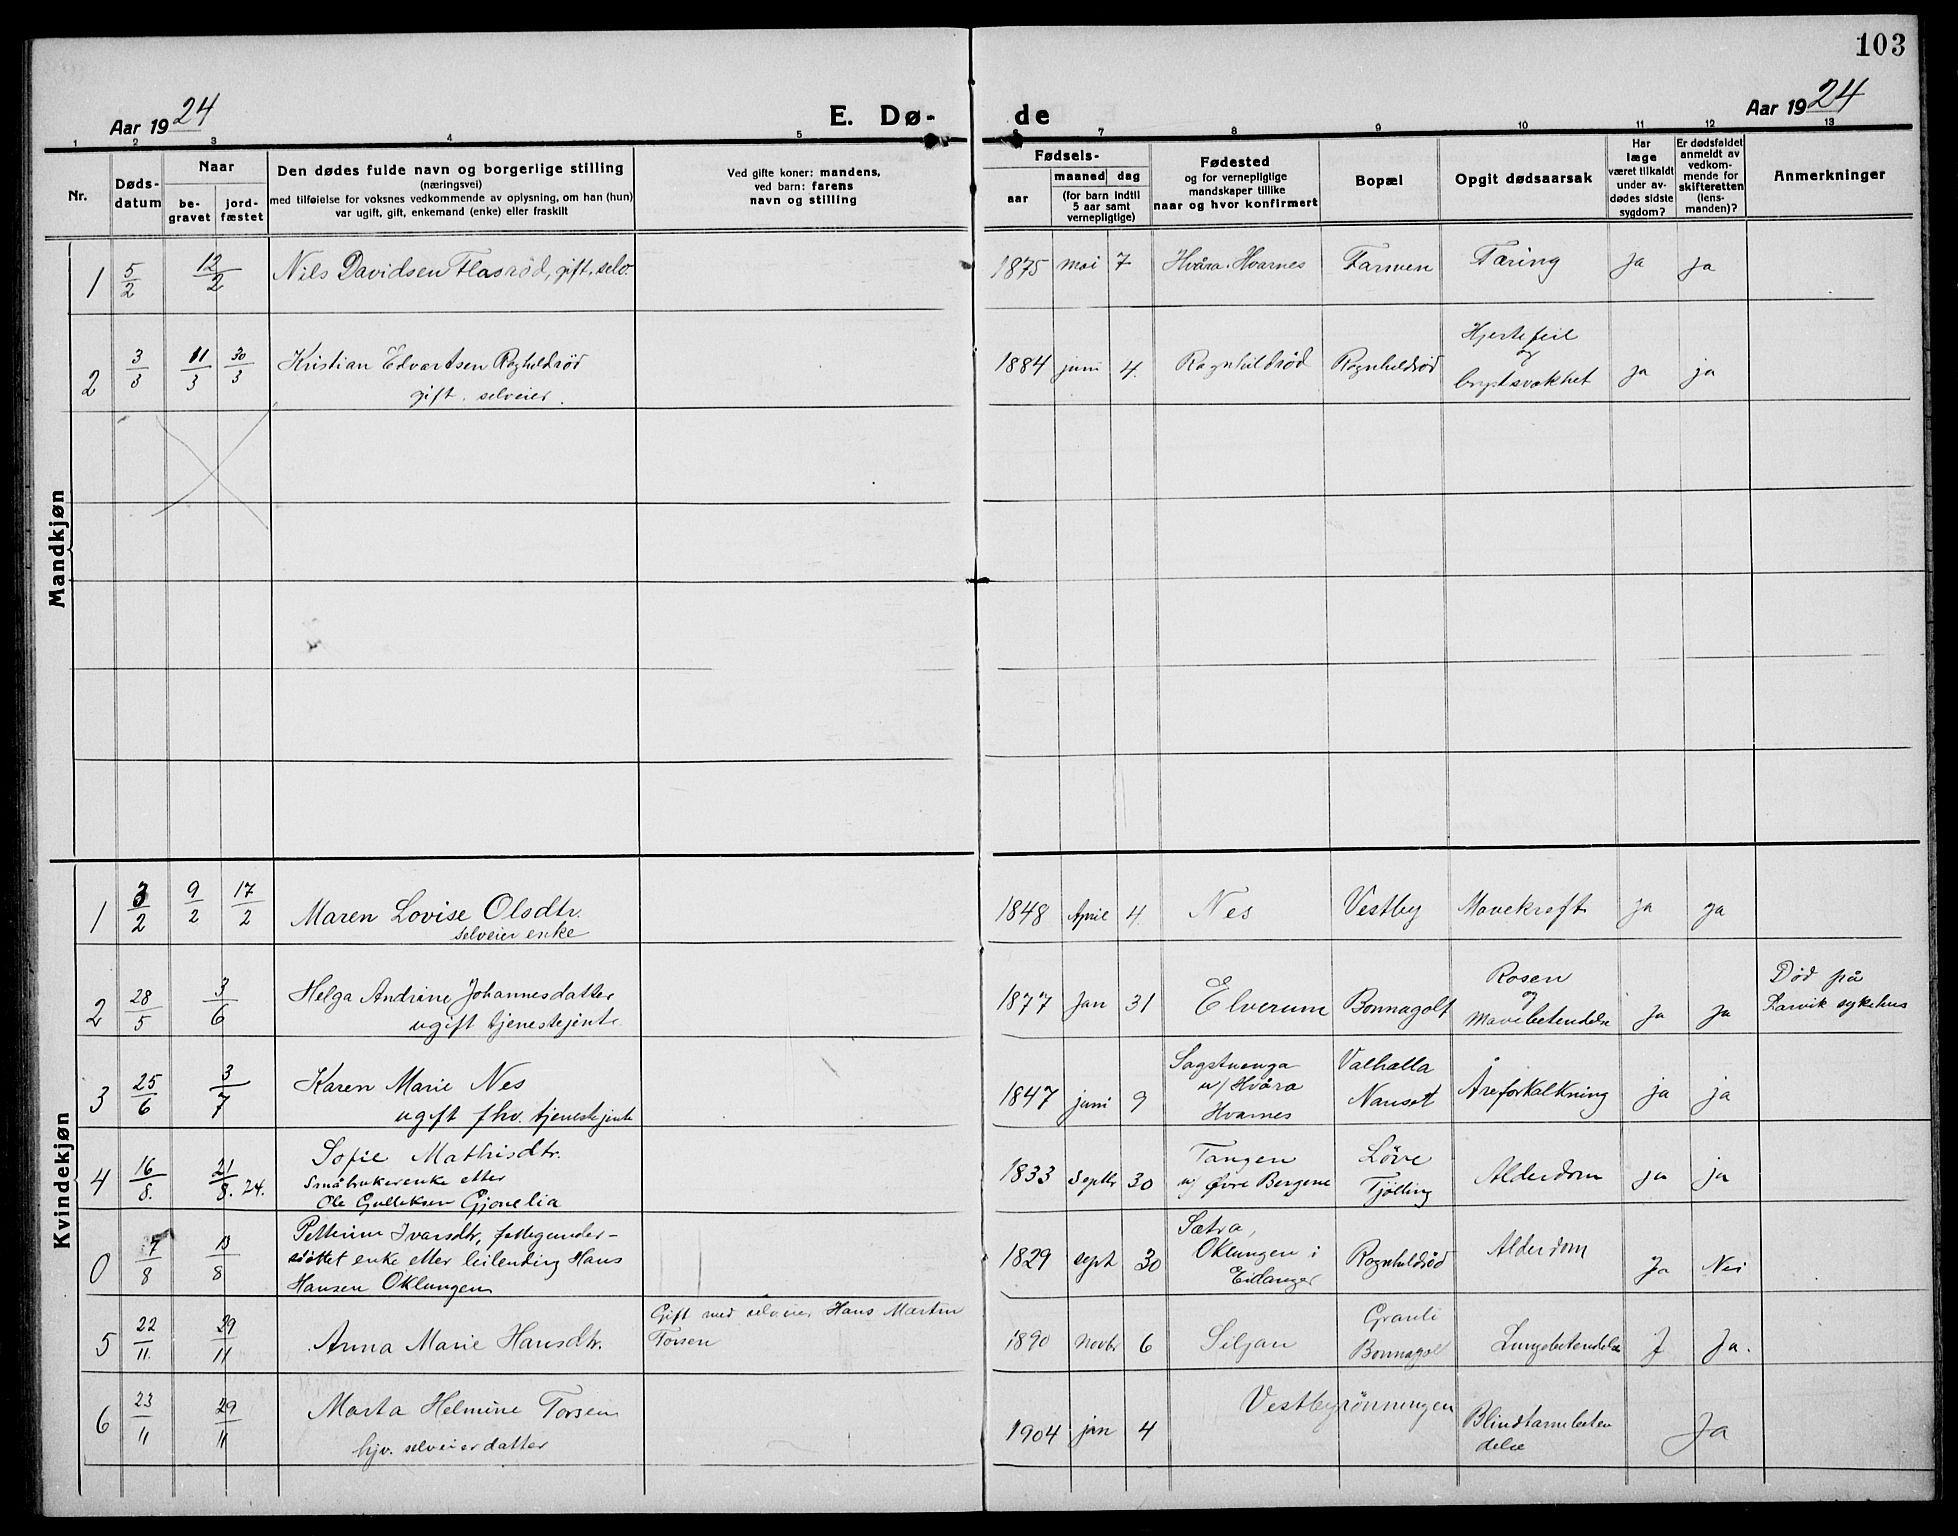 103
Aar 1924
E. Dø-
de
Aar 1924
1 2 3 4 5 6 7 8 9 10 11 12 13
Nr.
Døds-
datum
Naar
be-
gravet
jord-
fæstet
Den dødes fulde navn og borgerlige stilling
(næringsvei)
med tilføielse for voksnes vedkommende av oplysning, om han (hun)
var ugift, gift, enkemand (enke) eller fraskilt
Ved gifte koner: mandens,
ved barn: farens
navn og stilling
Fødsels-
aar
maaned
dag
(for barn indtil
5 aar samt
vernepligtige)
Fødested
og for vernepligtige
mandskaper tillike
naar og hvor konfirmert
Bopæl
Opgit dødsaarsak
Har
læge
været tilkaldt
under av-
dødes sidste
sygdom?
Er dødsfaldet
anmeldt av
vedkom-
mende for
skifteretten
(lens-
manden)?
Anmerkninger
Mandkjøn
1 5/2 12/2 Nils Davidsen Flasrød, gift, selv. 1875 mai 7 Hvåra. Hvarnes Farmen Tæring ja ja
2 3/3 11/3 30/3 Kristian Edvartsen Rogholdrød
gift. selveier.
1884 juni 4. Ragnhildrød Rognhuldrød
Hjertefeil
og
brystsvakhet
ja ja
Kvindekjøn
1 3/2 9/2 17/2 Maren Lovise Olsdtr.
selveier enke
1848 April 4. Nes Vestby Mavekreft ja ja
2 28/5 3/6 Helga Andrine Johannesdatter
ugift tjenestejente.
1877 Jan 31 Elverum Bonnagolt
Rosen
og
Mavebetendelse
Ja Ja
Død på
Larvik sykehus
3 25/6 3/7 Karen Marie Nes
ugift fhv. tjenestejente
1847 juni 9
Sagstuenga
u/ Hvåra
Hvarnes
Valhalla
Nanset
Åreforkalkning ja ja
4 16/8. 21/8. 24. Sofie Mathisdtr.
Småbrukerenke etter
Ole Gulliksen Gjonelia
1833 Septbr 30
Tangen
u/ Øvre Bergene
Løve
Tjølling
Alderdom ja ja
0 7/8 13/8 Petterine Ivarsdtr, fattigunder-
støttet enke etter leilending Hans
Hansen Oklungen
1829 sept 30
Sætra,
Oklungen i
Eidanger
Rognhuldrød Alderdom Ja Nei
5 22/11. 29/11 Anna Marie Hansdtr.
Gift med selveier Hans Martin
Torsen
1890 Novbr 6 Siljan
Granli
Bonnagolt
Lungebetendelse J Ja.
6 23/11 29/11 Marta Helmine Torsen
hjv. selveierdatter
1904 jan 4 Vestbyrønningen
Blindtarmbeten
delse
Ja